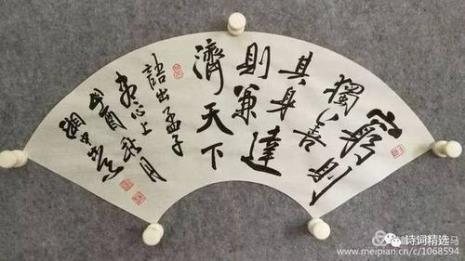 窮則
獨善
其身
則兼達
濟天下
語出孟子
盡心上秋月
诗词精选马
www.meipian.cn/c/1068594